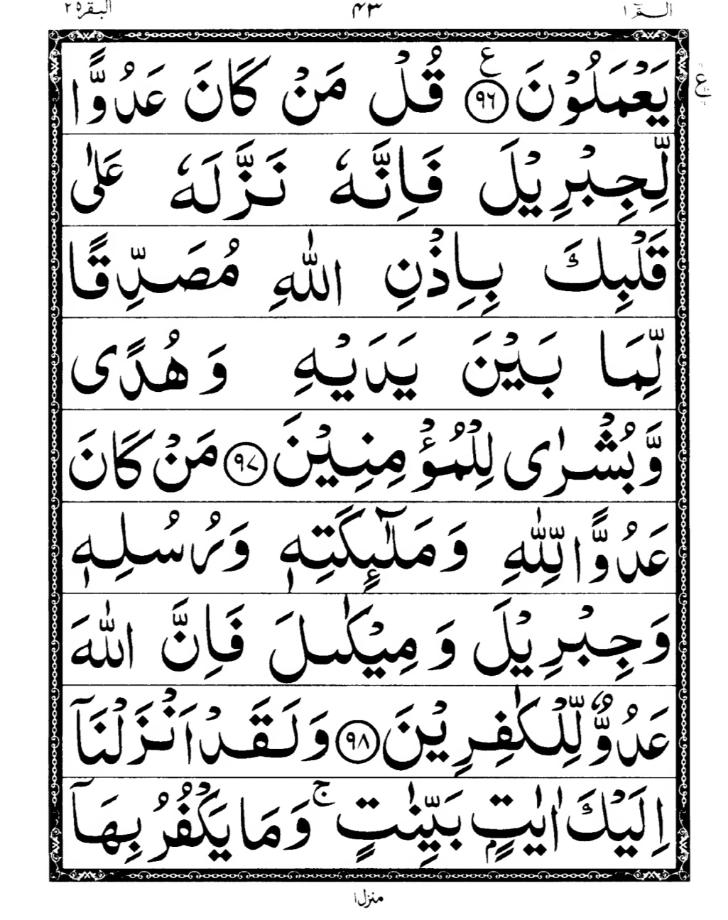 الٓمّٓ ۱ ۴۳ البقرة ۲
يَعْمَلُوْنَ ۹۶ ع قُلْ مَنْ كَانَ عَدُوًّا ع
لِّجِبْرِيْلَ فَاِنَّهٗ نَزَّلَهٗ عَلٰى
قَلْبِكَ بِاِذْنِ اللّٰهِ مُصَدِّقًا
لِّمَا بَيْنَ يَدَيْهِ وَهُدًى
وَّبُشْرٰى لِلْمُؤْمِنِيْنَ ۹۷ مَنْ كَانَ
عَدُوًّا لِّلّٰهِ وَمَلٰٓئِكَتِهٖ وَرُسُلِهٖ
وَجِبْرِيْلَ وَمِيْكٰىلَ فَاِنَّ اللّٰهَ
عَدُوٌّ لِّلْكٰفِرِيْنَ ۹۸ وَلَقَدْ اَنْزَلْنَآ
اِلَيْكَ اٰيٰتٍۭ بَيِّنٰتٍ ۚ وَمَا يَكْفُرُ بِهَآ
منزل ۱